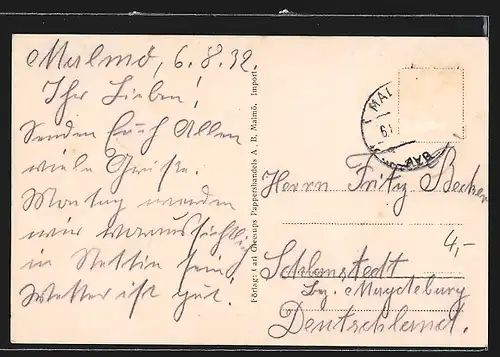 Malmö, 6.8.32.
Ihr Lieben!
Senden Euch Allen
viele Grüße.
Montag werden
wir voraussichtlich
in Stettin sein!
Wetter ist gut!
Förlag: Carl Gleerups Pappershandels A. B, Malmö. Import.
MAL
6.
Herrn Fritz Becker
4,-
Schlanstedt
bz. Magdeburg
Deutschland.